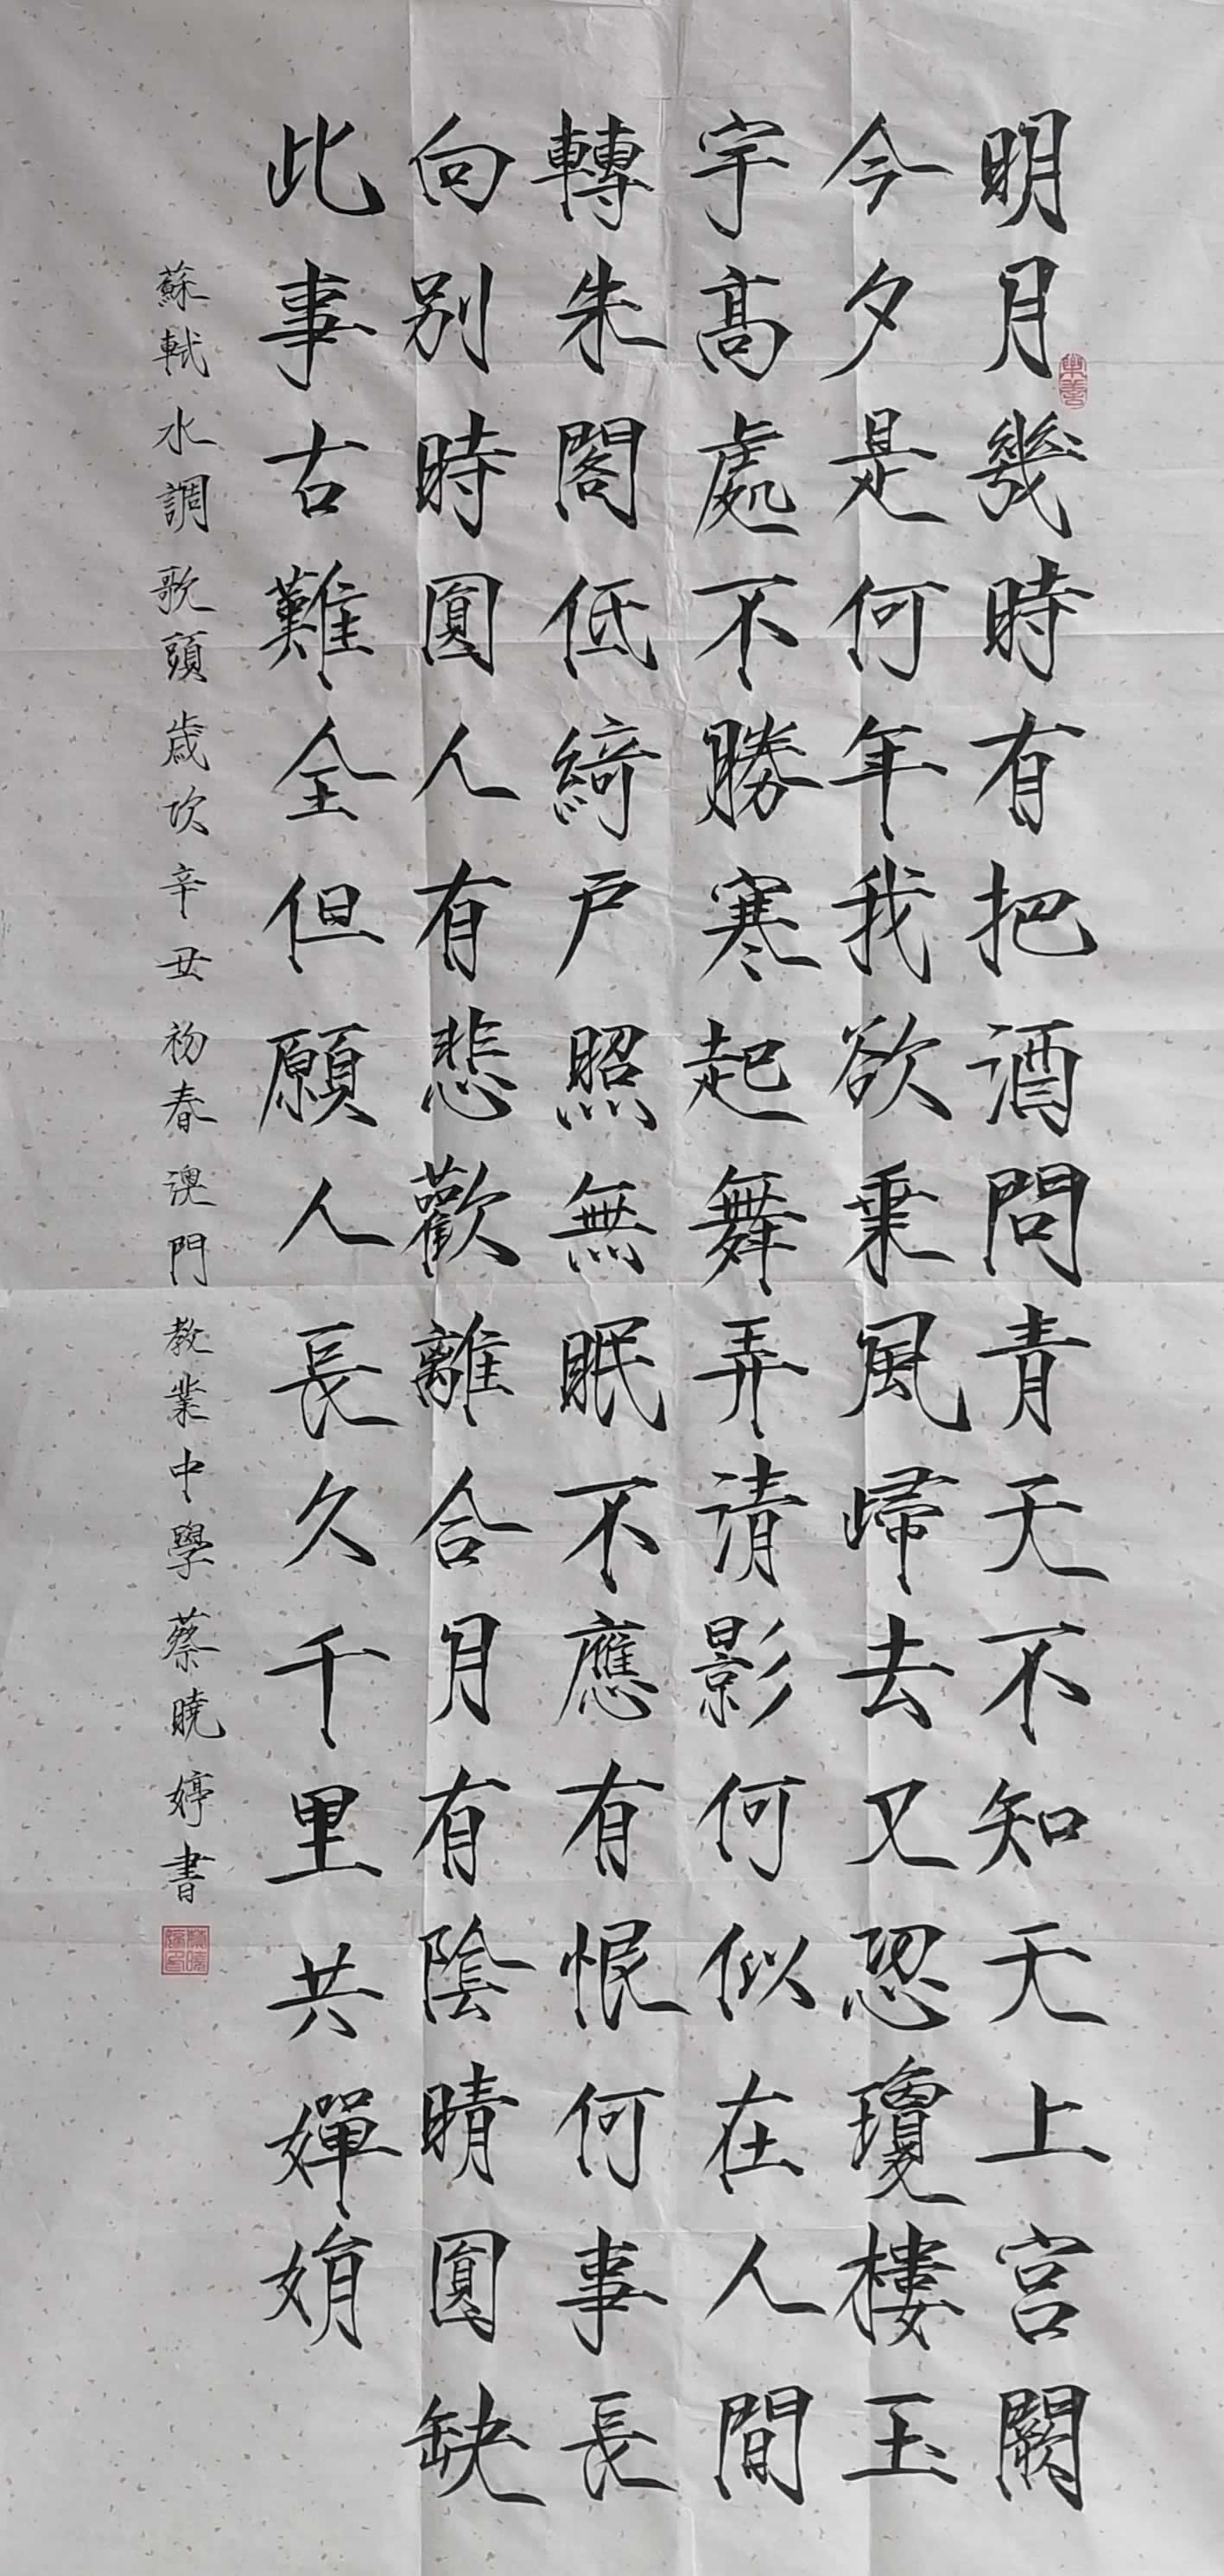 明月幾時有把酒問青天不知天上宮闕
今夕是何年我欲乘風歸去又恐瓊樓玉
宇高處不勝寒起舞弄清影何似在人間
轉朱閣低綺戶照無眠不應有恨何事長
向別時圓人有悲歡離合月有陰晴圓缺
此事古難全但願人長久千里共嬋娟
蘇軾水調歌頭歲次辛丑初春澳門教業中學蔡曉婷書